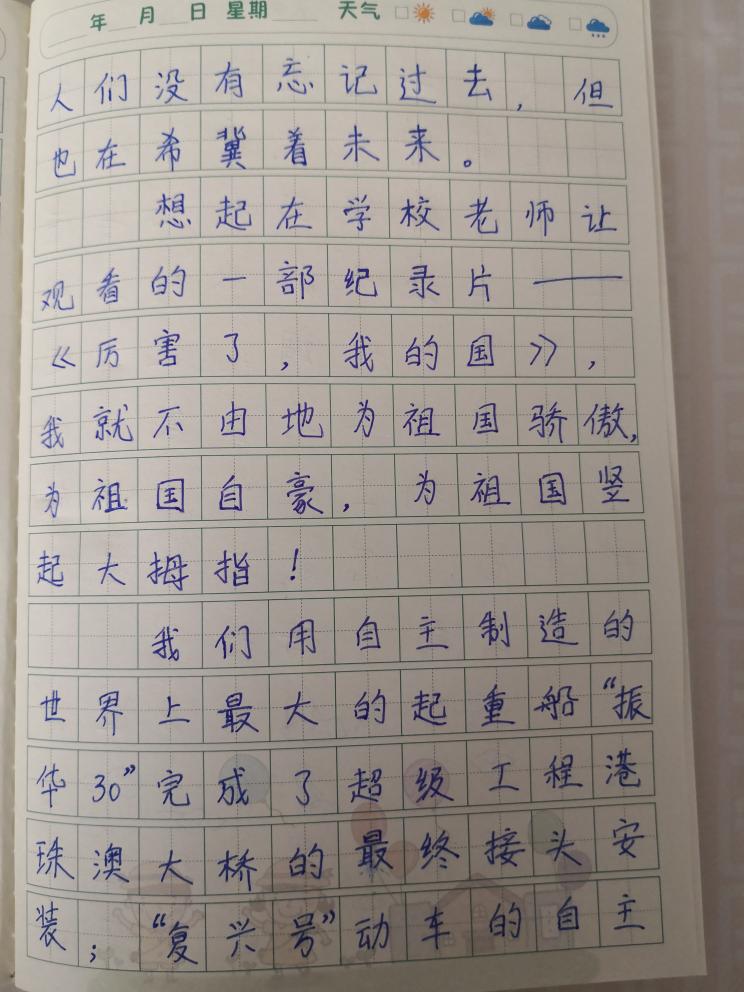 年 月 日 星期 天气
人们没有忘记过去,但
也在希冀着未来。
想起在学校老师让
观看的一部纪录片——
《厉害了,我的国》,
我就不由地为祖国骄傲,
为祖国自豪,为祖国竖
起大拇指!
我们用自主制造的
世界上最大的起重船“振
华30”完成了超级工程港
珠澳大桥的最终接头安
装;“复兴号”动车的自主